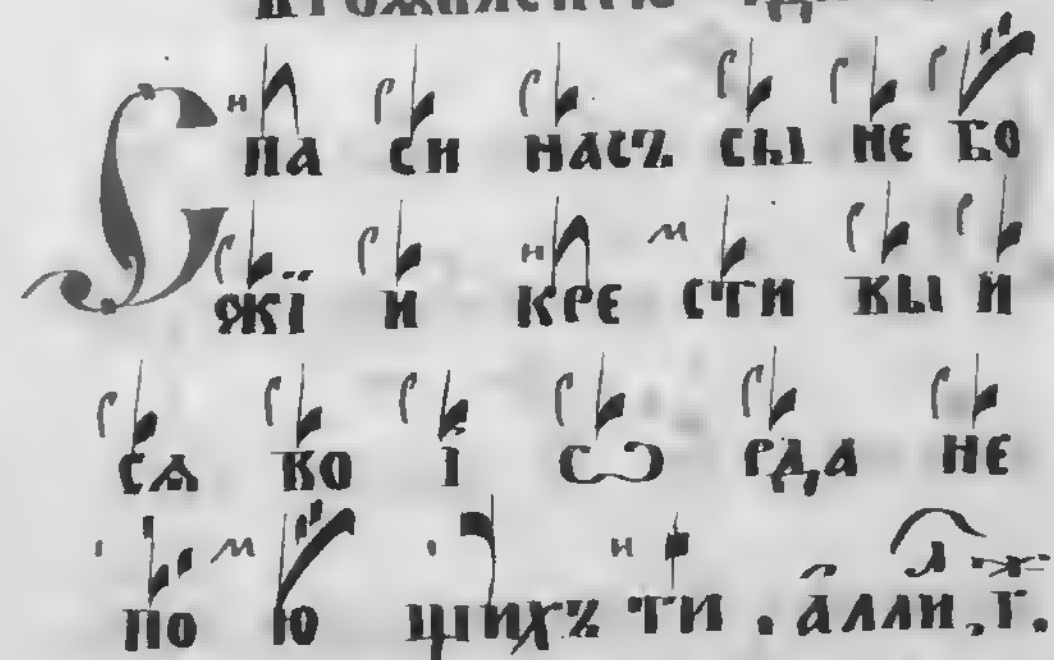 Спа си насъ сы не бо
жїи кре сти выи
сѧ во і ѡ рда не
по ю щихъ ти . алли, г.